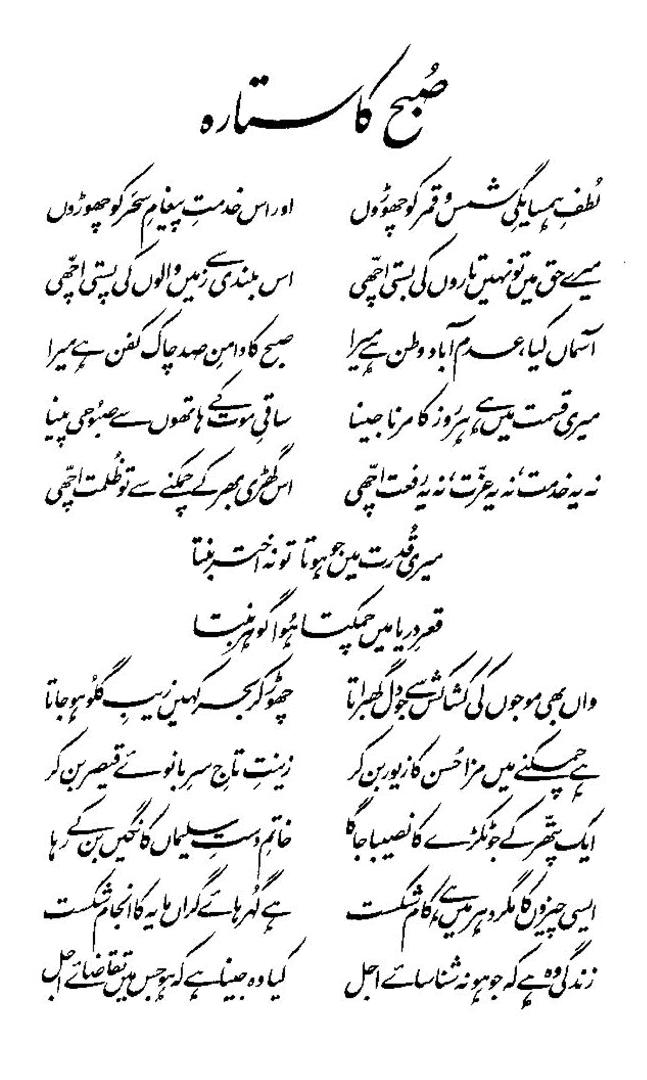 صُبح کا ستارہ
لُطفِ ہمسایگیِ شمس و قمر کو چھوڑوں اور اس خدمتِ پیغامِ سَحَر کو چھوڑوں
میرے حق میں تو نہیں تاروں کی بستی اچھّی اس بلندی سے زمیں والوں کی پستی اچھّی
آسماں کیا، عدم آباد وطن ہے میرا صبح کا دامنِ صد چاک کفن ہے میرا
میری قسمت میں ہے ہر روز کا مرنا جینا ساقیِ موت کے ہاتھوں سے صبُوحی پینا
نہ یہ خدمت، نہ یہ عزّت، نہ یہ رفعت اچھّی اس گھڑی بھر کے چمکنے سے تو ظُلمت اچھّی
میری قُدرت میں جو ہوتا تو نہ اختر بنتا
قعرِ دریا میں چمکتا ہُوا گوہر بنتا
واں بھی موجوں کی کشاکش سے جو دل گھبراتا چھوڑ کر بحر کہیں زیبِ گلُو ہو جاتا
ہے چمکنے میں مزا حُسن کا زیور بن کر زینتِ تاجِ سرِ بانوئے قیصر بن کر
ایک پتھّر کے جو ٹکڑے کا نصیبا جاگا خاتمِ دستِ سلیماں کا نگیں بن کے رہا
ایسی چیزوں کا مگر دہر میں ہے کام شکست ہے گُہر ہائے گراں مایہ کا انجام شکست
زندگی وہ ہے کہ جو ہو نہ شناسائے اجل کیا وہ جینا ہے کہ ہو جس میں تقاضائے اجل